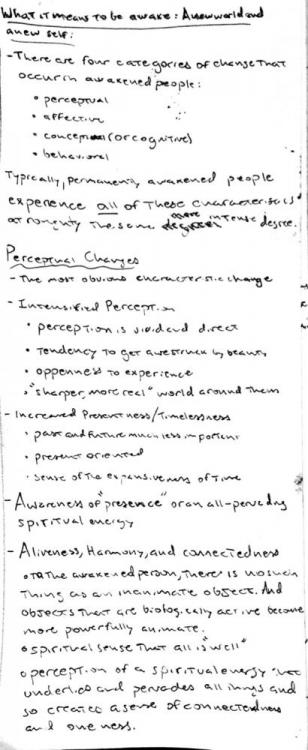 What it means to be awake: A new world and
a new self:
- There are four categories of change that
occur in awakened people:
• perceptual
• affective
• conceptual (or cognitive)
• behavioral
Typically, permanently awakened people
experience all of these characteristics
at roughly the same intense degree.
Perceptual Changes
- The most obvious characteristic change
- Intensified Perception
• perception is vivid and direct
• tendency to get awestruck by beauty
• oppenness to experience
• "sharper, more real" world around them
- Increased Presentness/Timelessness
• past and future much less important
• present oriented
• sense of the expansiveness of time
- Awareness of "presence" or an all-pervading
spiritual energy
- Aliveness, Harmony, and connectedness
• to the awakened person, there is no such
thing as an inanimate object. And
objects that are biologically active become
more powerfully animate.
• spiritual sense that "all is well"
• perception of a spiritual energy that
underlies and pervades all things and
so creates a sense of connectedness
and oneness.